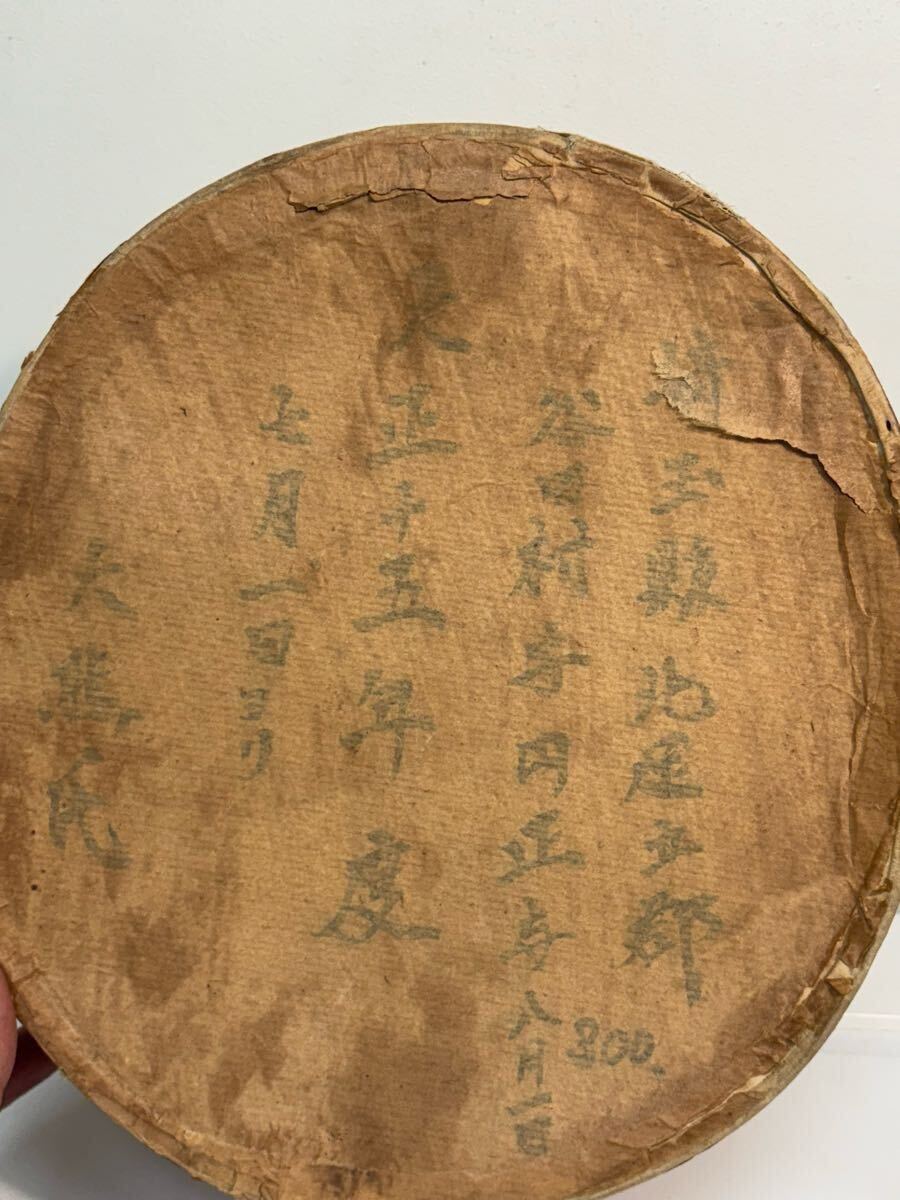 埼玉縣北足立郡
谷田村字円正寺八月一日
800.
大正十五年度
七月一日ヨリ
大熊氏